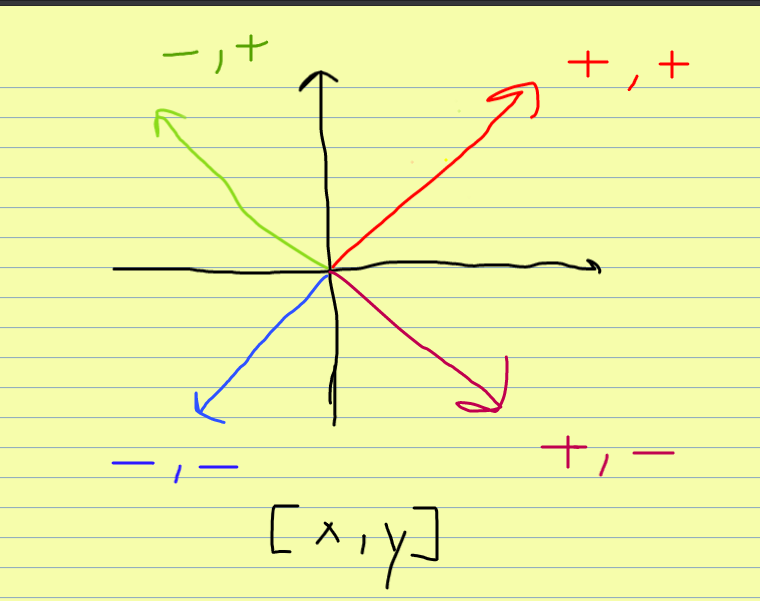 −,+
+,+
−,−
+,−
[x,y]